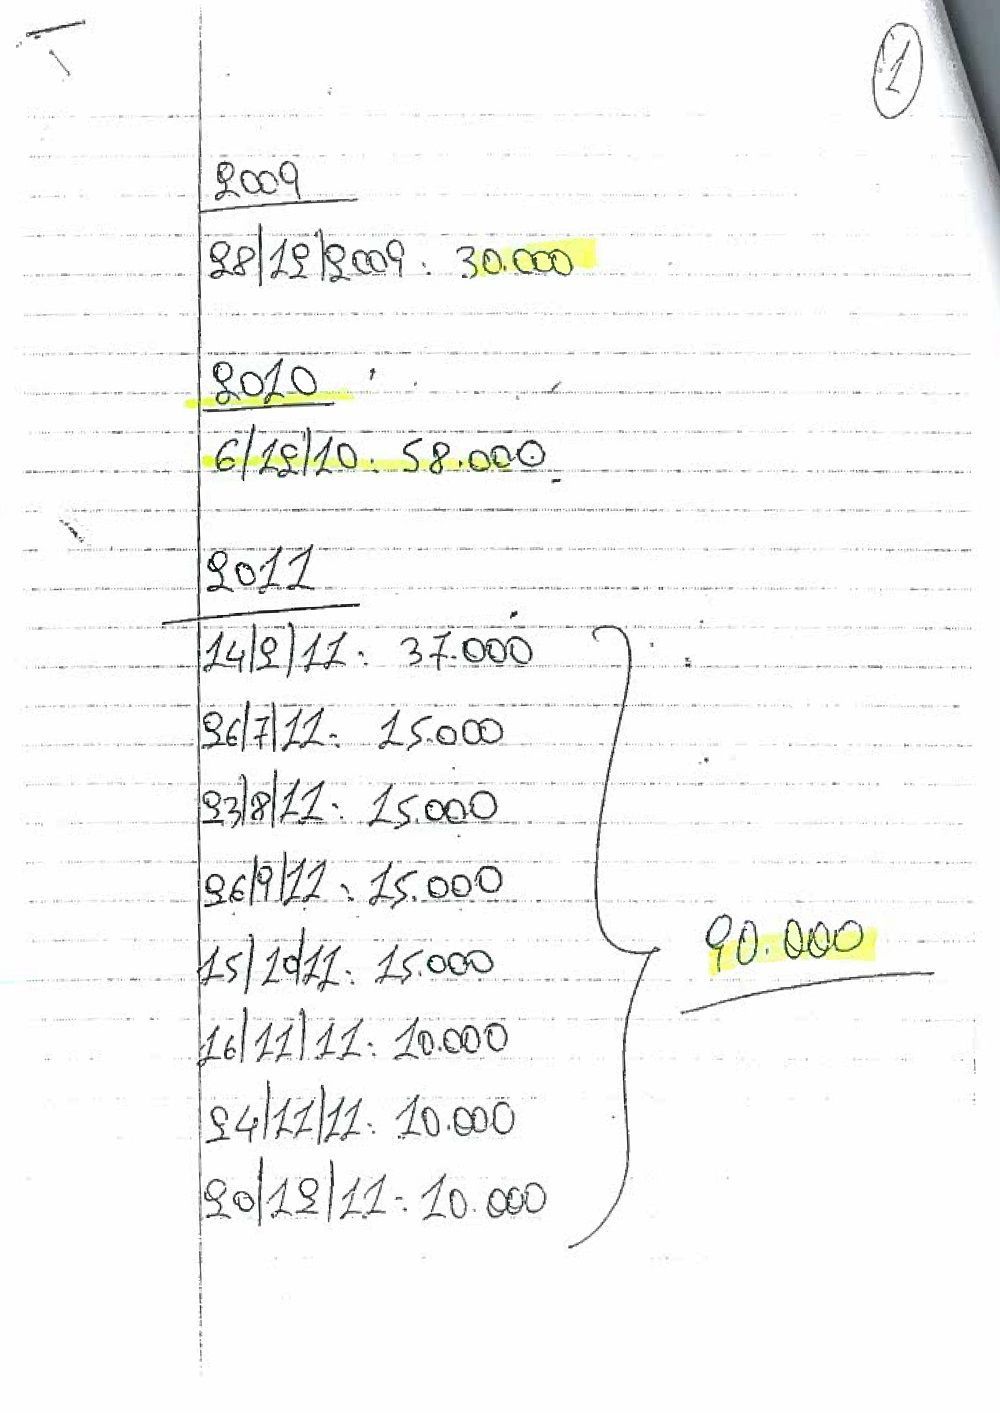 1
2009
28/12/2009: 30.000
2010
6/12/10: 58.000
2011
14/2/11: 37.000
26/7/11: 15.000
23/8/11: 15.000
26/9/11: 15.000
15/10/11: 15.000
90.000
16/11/11: 10.000
24/11/11: 10.000
20/12/11: 10.000